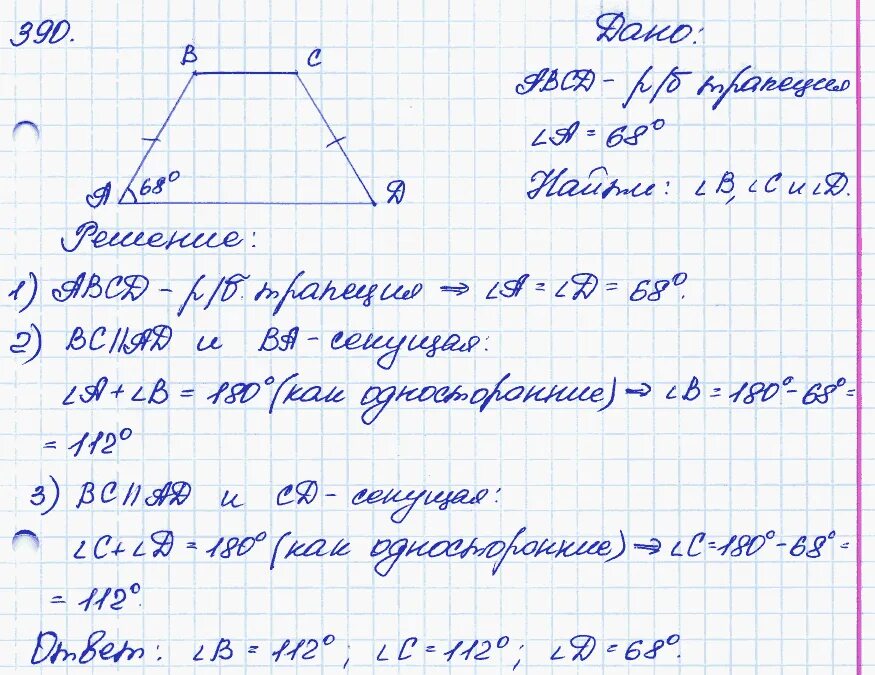 390.
Дано:
B C
ABCD - р/б трапеция
∠A = 68°
A 68° D
Найти: ∠B, ∠C и ∠D.
Решение:
1) ABCD - р/б. трапеция ⇒ ∠A = ∠D = 68°.
2) BC||AD и BA - секущая:
∠A + ∠B = 180° (как односторонние) ⇒ ∠B = 180° - 68° =
= 112°
3) BC||AD и CD - секущая:
∠C + ∠D = 180° (как односторонние) ⇒ ∠C = 180° - 68° =
= 112°.
Ответ: ∠B = 112°; ∠C = 112°; ∠D = 68°.